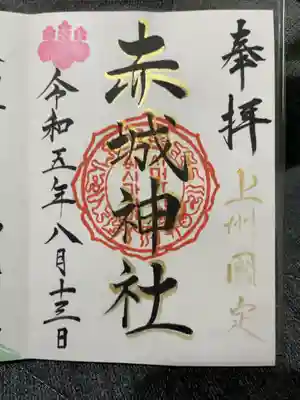 奉拝
上州國定
赤城神社
令和五年八月十三日